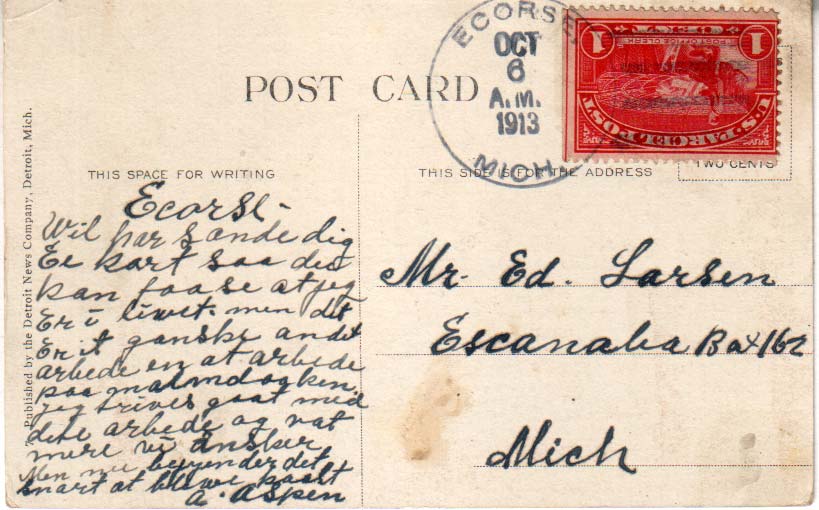 POST CARD
ECORSE,
OCT
6
A.M.
1913
MICH.
1 1
POST OFFICE CLERK
U.S. PARCEL POST
TWO CENTS
THIS SPACE FOR WRITING
THIS SIDE IS FOR THE ADDRESS
Published by the Detroit News Company, Detroit, Mich.
Ecorse -
Wil bar sande dig
Ee kort saa du
kan faa se at jeg
Er i liwet. men det
Er it ganske andet
arbede en at arbede
paa malmdogken.
jeg trives gaat med
dete arbede og vat
mere vi ønsker
Men nu beyender det
snart at bliwe kaalt
A. Aspen
Mr. Ed. Larsen
Escanaba Box 162
Mich